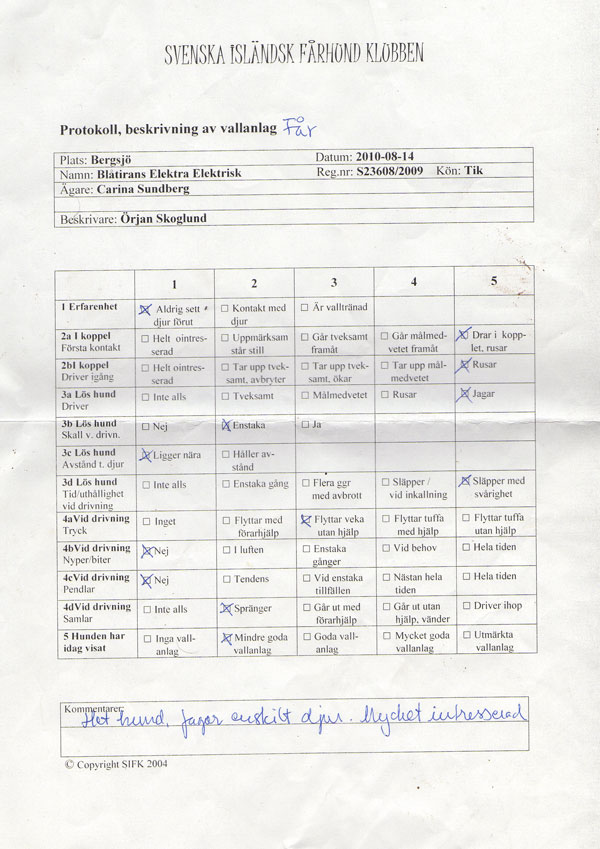 SVENSKA ISLÄNDSK FÅRHUND KLUBBEN
Protokoll, beskrivning av vallanlag Får
Plats: Bergsjö Datum: 2010-08-14
Namn: Blåtirans Elektra Elektrisk Reg.nr: S23608/2009 Kön: Tik
Ägare: Carina Sundberg
Beskrivare: Örjan Skoglund
1 2 3 4 5
1 Erfarenhet ☒ Aldrig sett ☐ Kontakt med ☐ Är valltränad
djur förut djur
2a I koppel ☐ Helt ointres- ☐ Uppmärksam ☐ Går tveksamt ☐ Går målmed- ☒ Drar i kopp-
Första kontakt serad står still framåt vetet framåt let, rusar
2bI koppel ☐ Helt ointres- ☐ Tar upp tvek- ☐ Tar upp tvek- ☐ Tar upp mål- ☒ Rusar
Driver igång serad samt, avbryter samt, ökar medvetet
3a Lös hund ☐ Inte alls ☐ Tveksamt ☐ Målmedvetet ☐ Rusar ☒ Jagar
Driver
3b Lös hund ☐ Nej ☒ Enstaka ☐ Ja
Skall v. drivn.
3c Lös hund ☒ Ligger nära ☐ Håller av-
Avstånd t. djur stånd
3d Lös hund ☐ Inte alls ☐ Enstaka gång ☐ Flera ggr ☐ Släpper / ☒ Släpper med
Tid/uthållighet med avbrott vid inkallning svårighet
vid drivning
4aVid drivning ☐ Inget ☐ Flyttar med ☒ Flyttar veka ☐ Flyttar tuffa ☐ Flyttar tuffa
Tryck förarhjälp utan hjälp med hjälp utan hjälp
4bVid drivning ☒ Nej ☐ I luften ☐ Enstaka ☐ Vid behov ☐ Hela tiden
Nyper/biter gånger
4cVid drivning ☒ Nej ☐ Tendens ☐ Vid enstaka ☐ Nästan hela ☐ Hela tiden
Pendlar tillfällen tiden
4dVid drivning ☐ Inte alls ☒ Spränger ☐ Går ut med ☐ Går ut utan ☐ Driver ihop
Samlar förarhjälp hjälp, vänder
5 Hunden har ☐ Inga vall- ☒ Mindre goda ☐ Goda vall- ☐ Mycket goda ☐ Utmärkta
idag visat anlag vallanlag anlag vallanlag vallanlag
Kommentarer:
Het hund, jagar enskilt djur. Mycket intresserad
© Copyright SIFK 2004